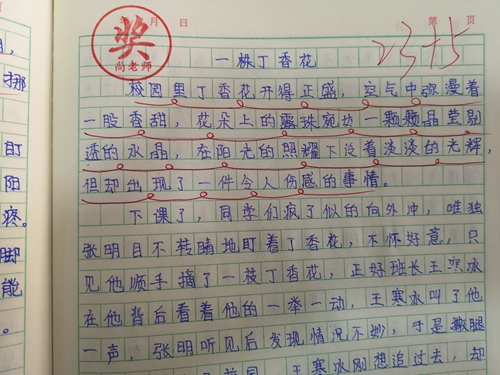 年 月 日
第 页
奖
尚老师
23+5
一株丁香花
校园里丁香花开得正盛，空气中弥漫着
一股香甜，花朵上的露珠宛如一颗颗晶莹剔
透的水晶，在阳光的照耀下泛着淡淡的光辉，
但却出现了一件令人伤感的事情。
下课了，同学们疯了似的向外冲，唯独
张明目不转睛地盯着了香花，不怀好意，只
见他顺手摘了一枝丁香花，正好班长王寒冰
在他背后看着他的一举一动，王寒冰叫了他
一声，张明听见后发现情况不妙，于是撒腿
王寒冰刚想追过去，却
挪
盯
阳
疼。
脚
能
。